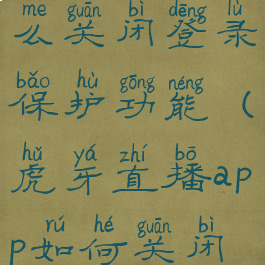 me guān bì dēng lù
么关闭登录
bǎo hù gōng néng
保护功能（
hǔ yá zhí bō
虎牙直播ap
rú hé guān bì
p如何关闭